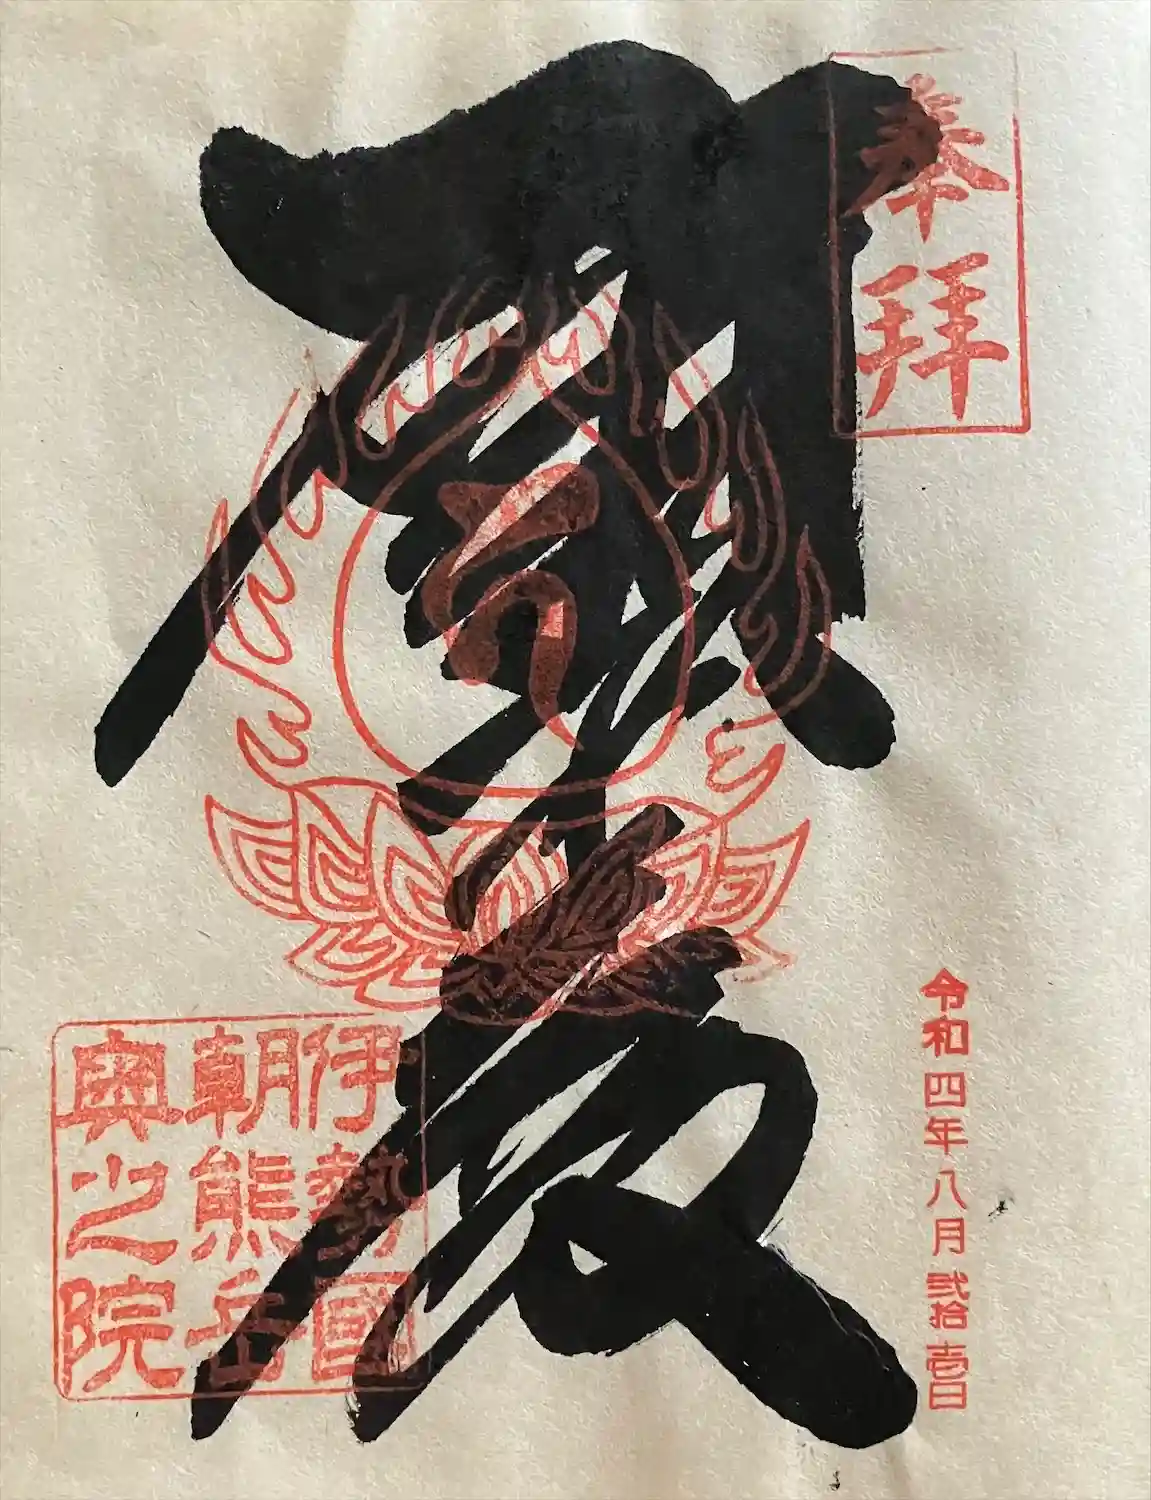 奉拝
令和四年八月弐拾壱日
伊勢國
朝熊岳
奥之院